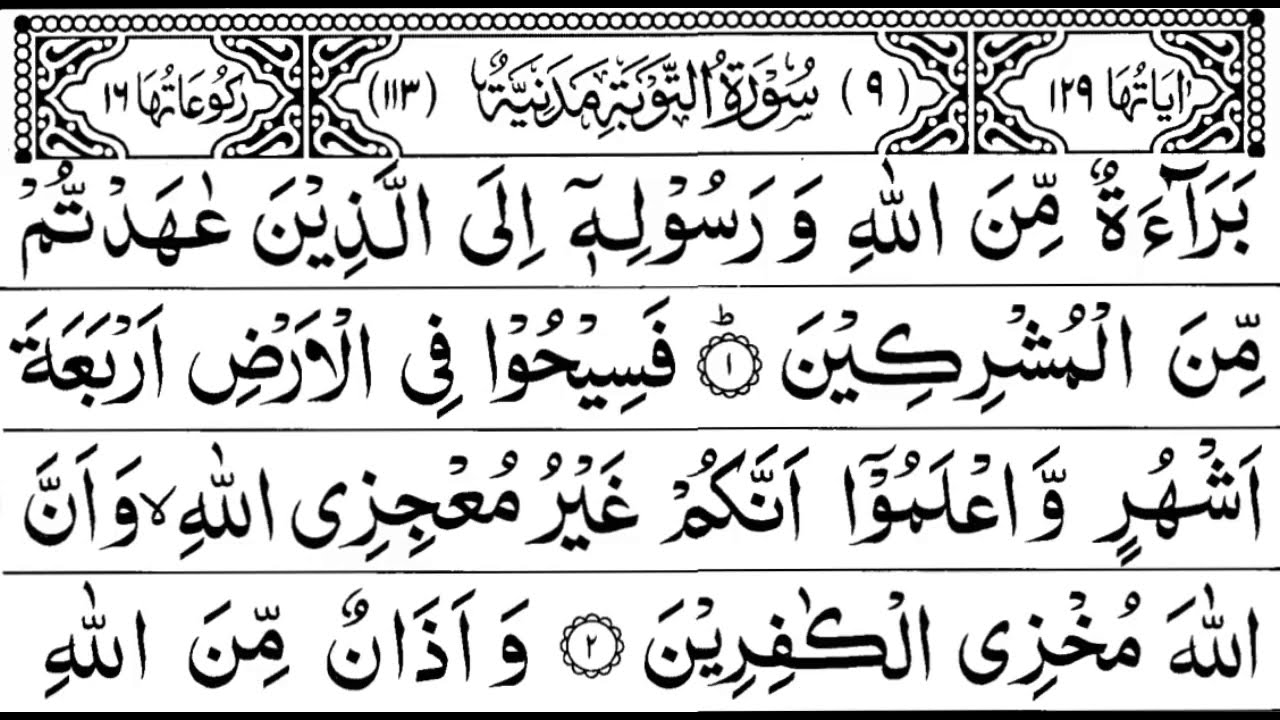 اٰيَاتُهَا ١٢٩ (٩) سُوْرَةُ التَّوْبَةِ مَدَنِيَّةٌ (١١٣) رُكُوْعَاتُهَا ١٦
بَرَآءَةٌ مِّنَ اللّٰهِ وَ رَسُوْلِهٖۤ اِلَى الَّذِيْنَ عٰهَدْتُّمْ
مِّنَ الْمُشْرِكِيْنَؕ ١ فَسِيْحُوْا فِى الْاَرْضِ اَرْبَعَةَ
اَشْهُرٍ وَّ اعْلَمُوْۤا اَنَّكُمْ غَيْرُ مُعْجِزِى اللّٰهِۙ وَ اَنَّ
اللّٰهَ مُخْزِى الْكٰفِرِيْنَ ٢ وَ اَذَانٌ مِّنَ اللّٰهِ